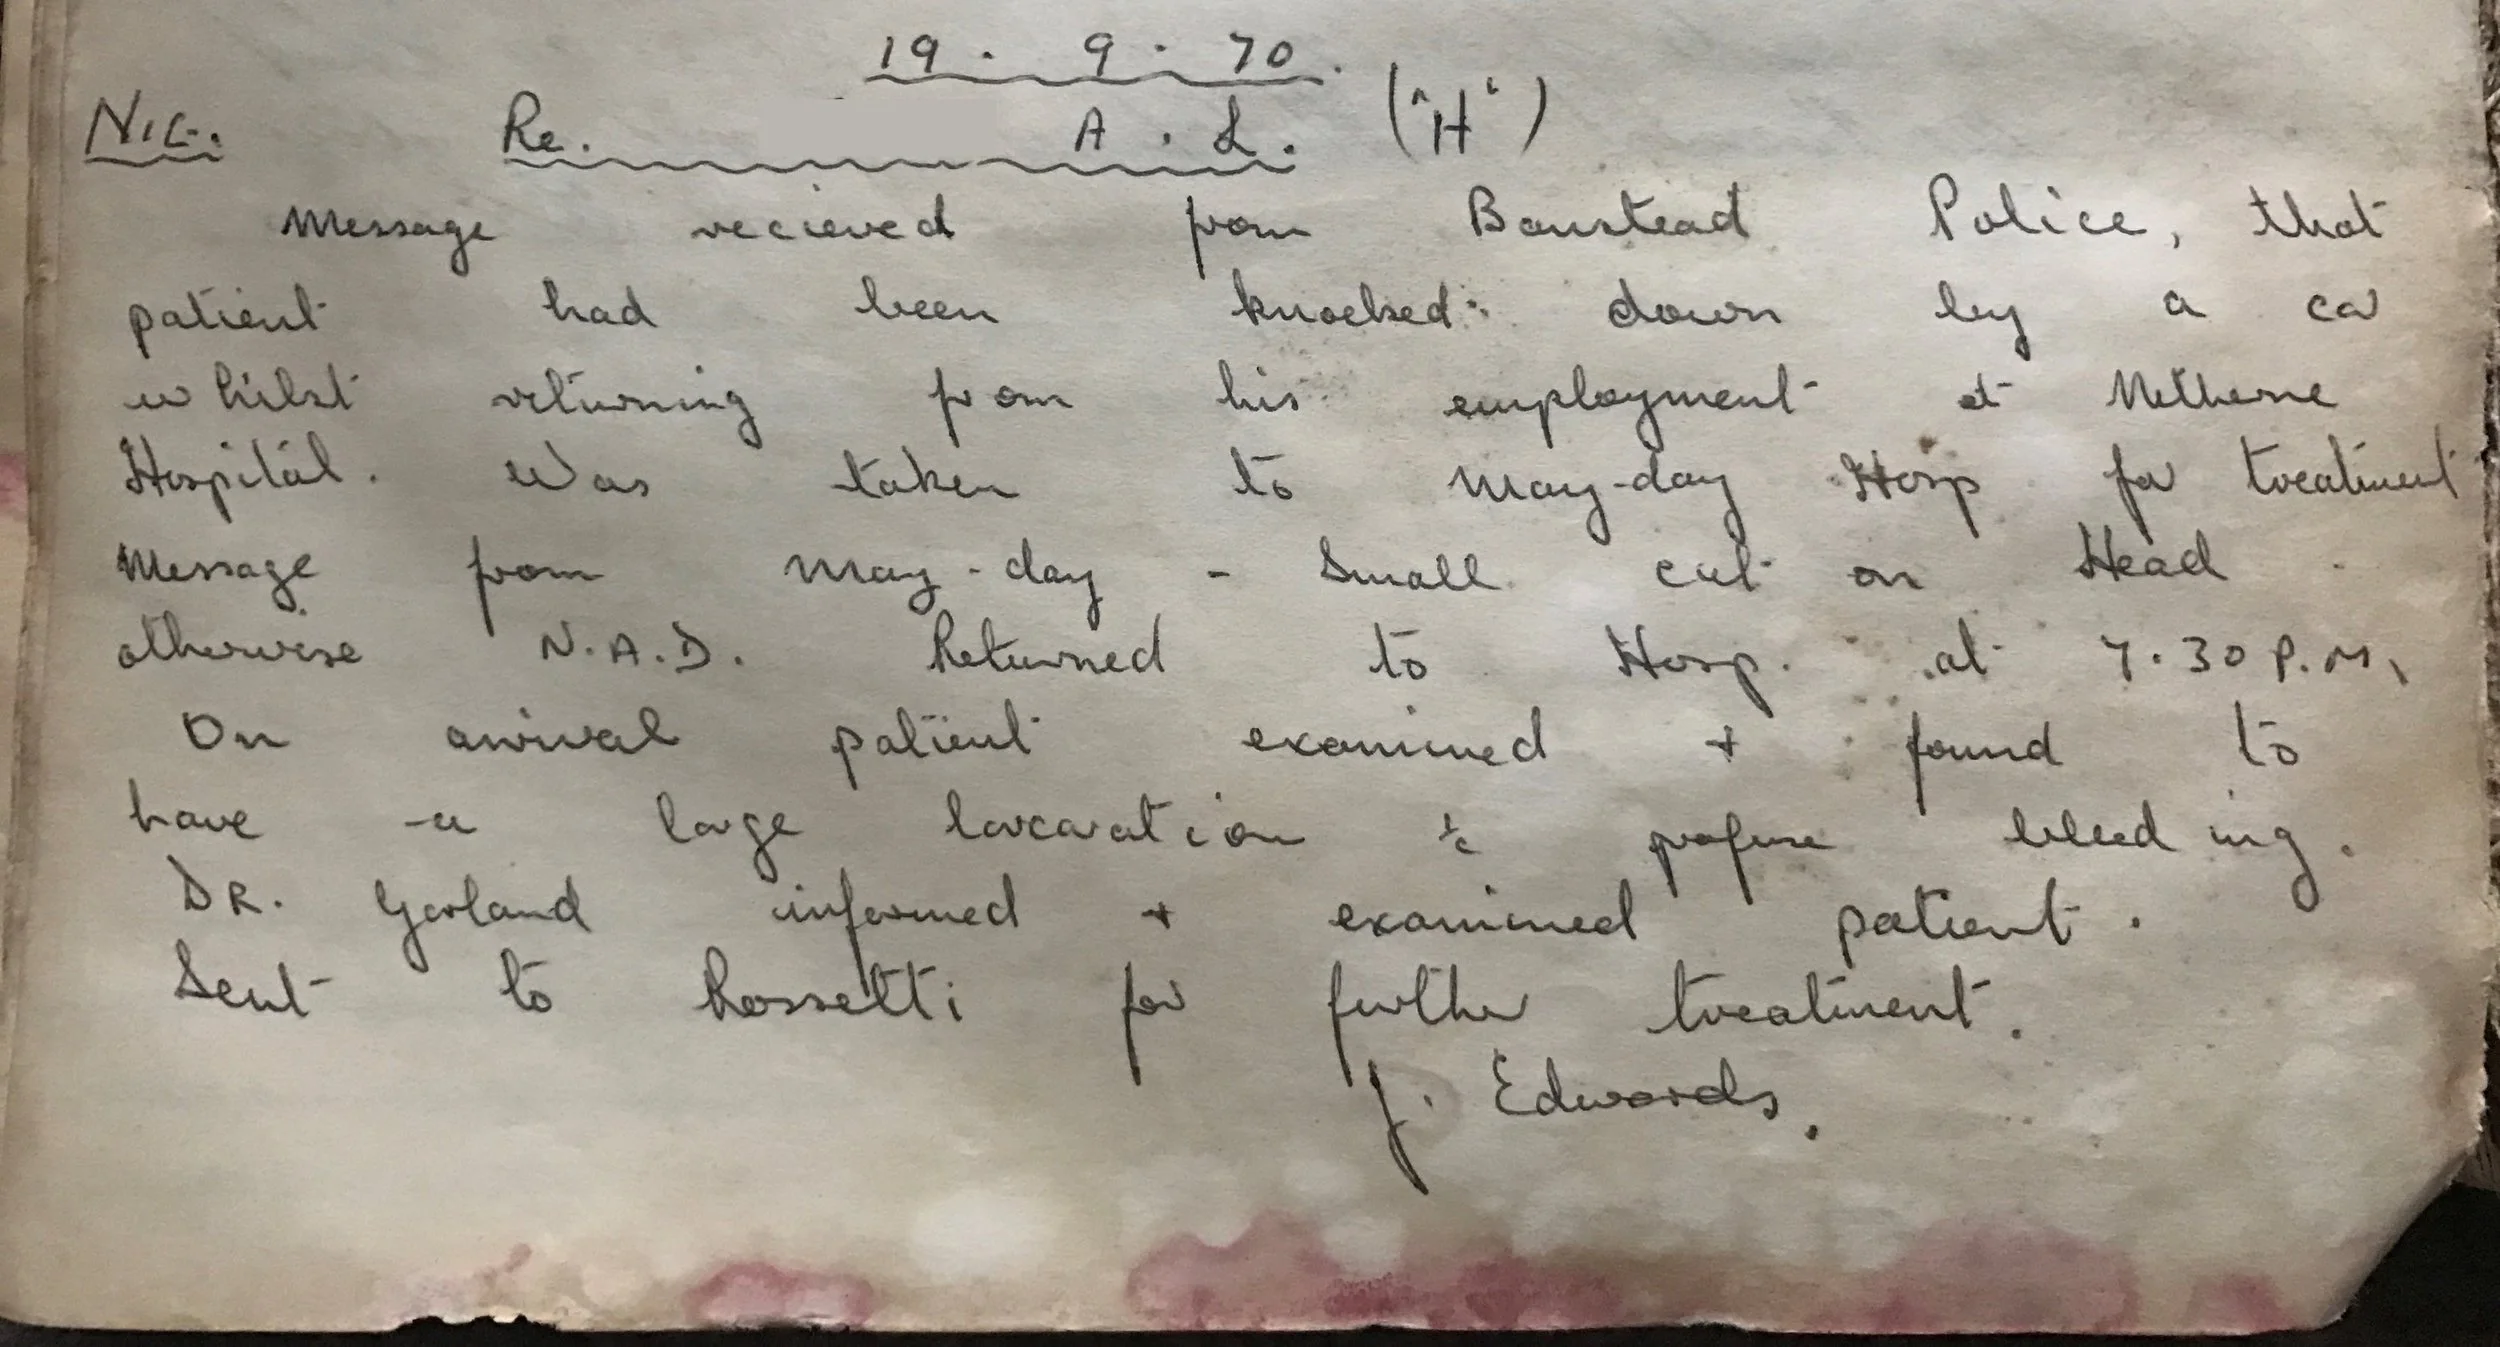 19 . 9 . 70.
N.C. Re. A . L. ("H")
Message recieved from Banstead Police, that
patient had been knocked down by a car
whilst returning from his employment at Netherne
Hospital. Was taken to May-day Hosp for treatment
Message from May-day - Small cut on Head
otherwise N.A.D. Returned to Hosp. at 7.30 P.M.
On arrival patient examined + found to
have a large larcaration c̄ profuse bleeding.
DR. Garland informed + examined patient.
Sent to Rossetti for further treatment.
J. Edwards.